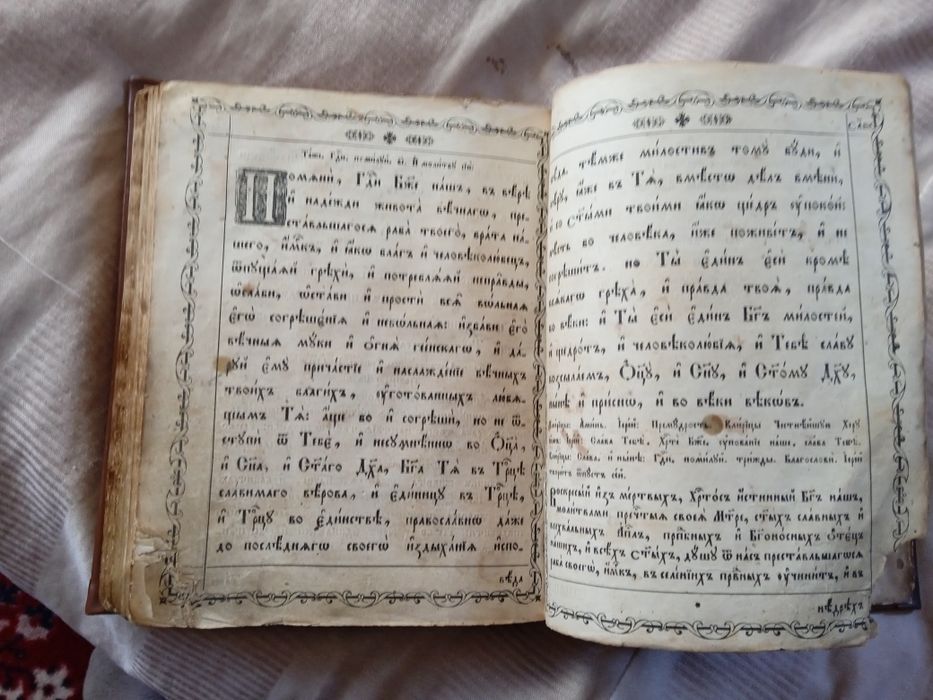 Таже, Гдⷭ҇и помилуй, в҃і. И молитву сїю:
Помѧни, Гдⷭ҇и Бж҃е нашъ, въ вѣрѣ
и҆ надежди живота вѣчнагѡ, пре-
ставльшагосѧ раба твоего, брата на-
шего, и҆м҃къ, и҆ ꙗ҆кѡ благъ и҆ человѣколюбецъ,
ѿпꙋщаѧй грѣхи, и҆ потреблѧѧй неправды,
ѡ҆слаби, ѡ҆стави и҆ прости всѧ вѡльнаѧ
е҆гѡ̀ согрѣшенїѧ и҆ невѡльнаѧ: и҆збави е҆го̀
вѣчныѧ мꙋки и҆ ѻ҆гнѧ геенскагѡ, и҆ да-
рꙋй е҆мꙋ причастїе и҆ наслажденїе вѣчныхъ
твоихъ благихъ, ᲂу҆готованныхъ любѧ-
щымъ Тѧ̀: а҆ще бо и҆ согрѣши, но не ѿ-
стꙋпи ѿ Тебє, и҆ несꙋмнѣннѡ во Ѻ҆ц҃а,
и҆ Сн҃а, и҆ Ст҃аго Дх҃а, Бг҃а Тѧ въ Трⷪ҇цѣ
славимаго вѣрова, и҆ Е҆диницꙋ въ Трⷪ҇цѣ,
и҆ Трⷪ҇цꙋ во Е҆динствѣ, православнѡ даже
до послѣднѧгѡ своегѡ и҆здыханїѧ и҆спо-
вѣда
вѣда. тѣмже милостивъ томꙋ бꙋди, и҆
вѣрꙋ, ꙗ҆же въ Тѧ̀, вмѣстѡ дѣлъ вмѣни,
и҆ со ст҃ыми твоими ꙗ҆кѡ щедръ ᲂу҆покой:
нѣсть бо человѣка, и҆же поживетъ, и҆ не
согрѣшитъ. но Ты̀ Е҆динъ Е҆си кромѣ
всѧкагѡ грѣха, и҆ правда твоѧ, правда
во вѣки: и҆ Ты̀ Е҆си Е҆динъ Бг҃ъ милостей,
и҆ щедрѡтъ, и҆ человѣколюбїѧ, и҆ Тебѣ славꙋ
возсылаемъ, Ѻ҆ц҃ꙋ, и҆ Сн҃ꙋ, и҆ Ст҃омꙋ Дх҃ꙋ,
нынѣ и҆ приснѡ, и҆ во вѣки вѣкѡвъ.
Клирицы: Аминь. Іерей: Премꙋдрость. Клирицы: Честнѣйшꙋю Херꙋ
Іерей: Слава Тебѣ, Хрⷭ҇те Бж҃е, ᲂу҆пованїе наше, слава Тебѣ.
Клирицы: Слава, и҆ нынѣ: Гдⷭ҇и, помилꙋй, трижды. Благослови. Іерей
творитъ ѿпꙋстъ сей:
Воскресый и҆зъ мертвыхъ, Хрⷭ҇тосъ и҆стинный Бг҃ъ нашъ,
молитвами пречⷭ҇тыѧ своеѧ Мт҃ре, ст҃ыхъ славныхъ и҆
всехвальныхъ Ап҃лъ, прпⷣбныхъ и҆ Бг҃оносныхъ Ѻ҆тецъ
нашихъ, и҆ всѣхъ Ст҃ыхъ, дꙋшꙋ ѿ насъ преставльшагосѧ
раба своегѡ, и҆м҃къ, въ селенїихъ првⷣныхъ ᲂу҆чинитъ, и҆ въ
нѣдрѣхъ